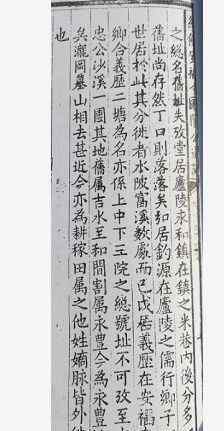 之總名舊址失攷堂居廬陵永和鎮在鎮之米巷內後分多
舊址尚存然丁口則落落矣如居釣源在廬陵之儒行鄉子
世居於此其分徙者水陂富溪教廠而已戊居義歷在安福
鄉合義歷二塘為名亦係上中下三院之總號址不可攷至
忠公沙溪一圖其地舊属吉水至和間割属永豊今為永豊
矣瀧岡墓山相去甚近今亦為耕稼田属之他姓嫡脉皆外徙
也